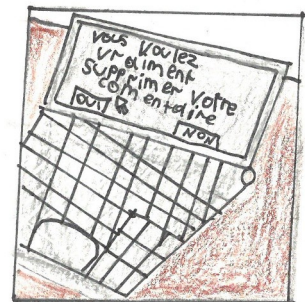 vous voulez
vraiment
supprimer votre
comentaire
OUI NON